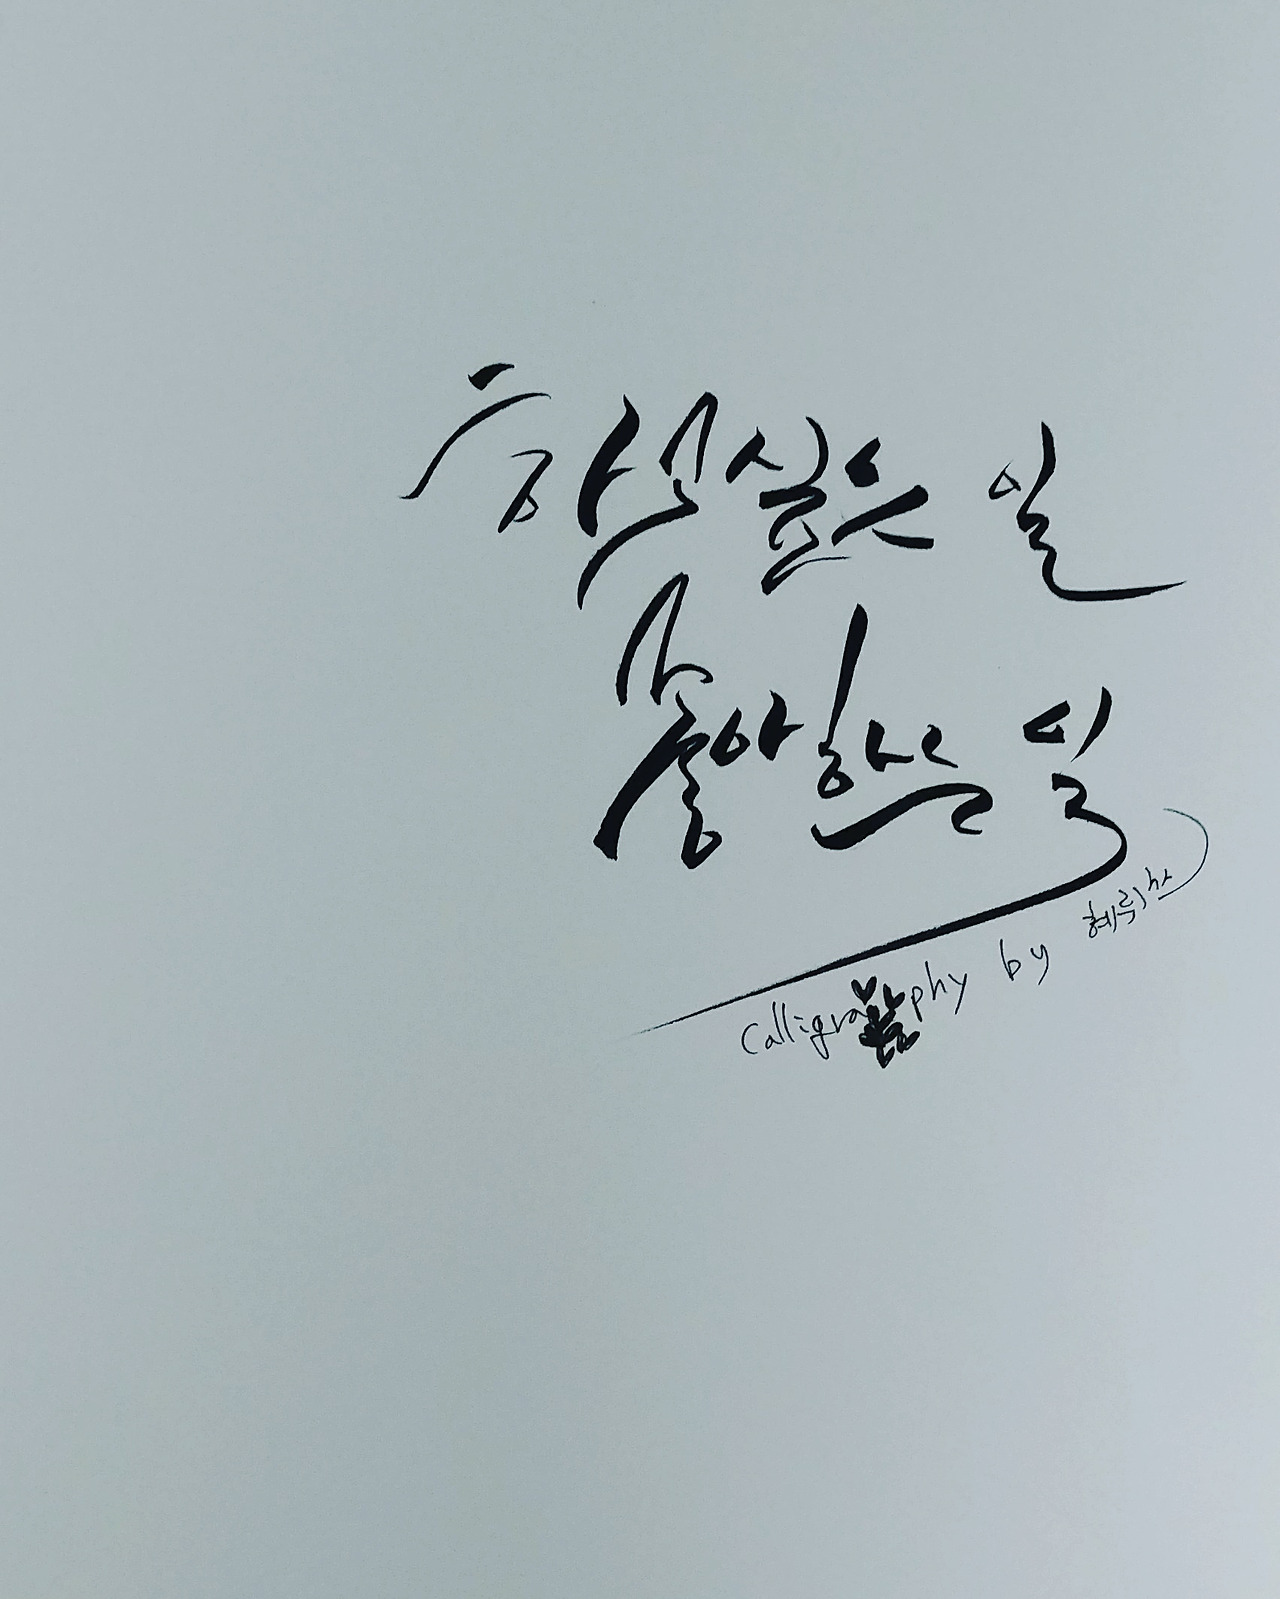 하고싶은 일
좋아하는 일
Calligraphy by 혜뤼찌